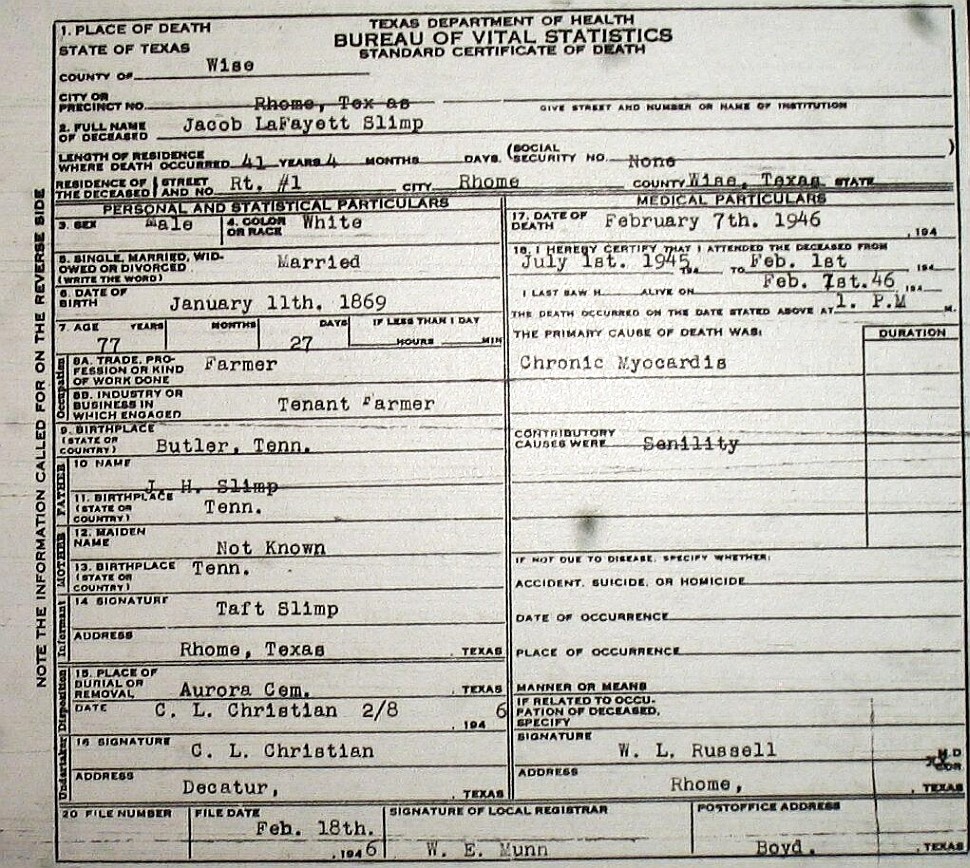 TEXAS DEPARTMENT OF HEALTH
BUREAU OF VITAL STATISTICS
STANDARD CERTIFICATE OF DEATH
NOTE THE INFORMATION CALLED FOR ON THE REVERSE SIDE
1. PLACE OF DEATH
STATE OF TEXAS
COUNTY OF Wise
CITY OR PRECINCT NO. Rhome, Tex as
GIVE STREET AND NUMBER OR NAME OF INSTITUTION
2. FULL NAME OF DECEASED Jacob LaFayett Slimp
LENGTH OF RESIDENCE WHERE DEATH OCCURRED 41 YEARS 4 MONTHS DAYS. (SOCIAL SECURITY NO. None )
RESIDENCE OF THE DECEASED STREET AND NO. Rt. #1 CITY Rhome COUNTY Wise, Texas STATE
PERSONAL AND STATISTICAL PARTICULARS
3. SEX Male 4. COLOR OR RACE White
5. SINGLE, MARRIED, WIDOWED OR DIVORCED (WRITE THE WORD) Married
6. DATE OF BIRTH January 11th. 1869
7. AGE YEARS MONTHS DAYS IF LESS THAN 1 DAY
77 27 HOURS MIN
Occupation
8A. TRADE, PROFESSION OR KIND OF WORK DONE Farmer
8B. INDUSTRY OR BUSINESS IN WHICH ENGAGED Tenant Farmer
9. BIRTHPLACE (STATE OR COUNTRY) Butler, Tenn.
FATHER
10 NAME J. H. Slimp
11. BIRTHPLACE (STATE OR COUNTRY) Tenn.
MOTHER
12. MAIDEN NAME Not Known
13. BIRTHPLACE (STATE OR COUNTRY) Tenn.
Informant
14 SIGNATURE Taft Slimp
ADDRESS Rhome, Texas , TEXAS
Disposition
15. PLACE OF BURIAL OR REMOVAL Aurora Cem. , TEXAS
DATE C. L. Christian 2/8 , 194 6
Undertaker
16 SIGNATURE C. L. Christian
ADDRESS Decatur, , TEXAS
MEDICAL PARTICULARS
17. DATE OF DEATH February 7th. 1946 , 194
18. I HEREBY CERTIFY THAT I ATTENDED THE DECEASED FROM
July 1st. 1945 194 TO Feb. 1st 194
I LAST SAW H ALIVE ON Feb. 1st.46 194
THE DEATH OCCURRED ON THE DATE STATED ABOVE AT 1. P.M M.
THE PRIMARY CAUSE OF DEATH WAS: DURATION
Chronic Myocardis
CONTRIBUTORY CAUSES WERE Senility
IF NOT DUE TO DISEASE, SPECIFY WHETHER:
ACCIDENT, SUICIDE, OR HOMICIDE
DATE OF OCCURRENCE
PLACE OF OCCURRENCE
MANNER OR MEANS
IF RELATED TO OCCUPATION OF DECEASED, SPECIFY
SIGNATURE W. L. Russell M.D.
COR.
ADDRESS Rhome, , TEXAS
20 FILE NUMBER FILE DATE SIGNATURE OF LOCAL REGISTRAR POSTOFFICE ADDRESS
Feb. 18th.
, 194 6 W. E. Munn Boyd. , TEXAS